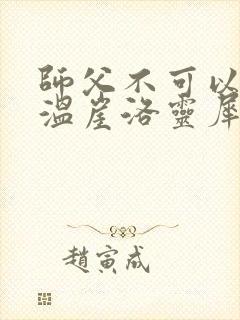 師父不可以
溫崖洛靈犀
趙寅成